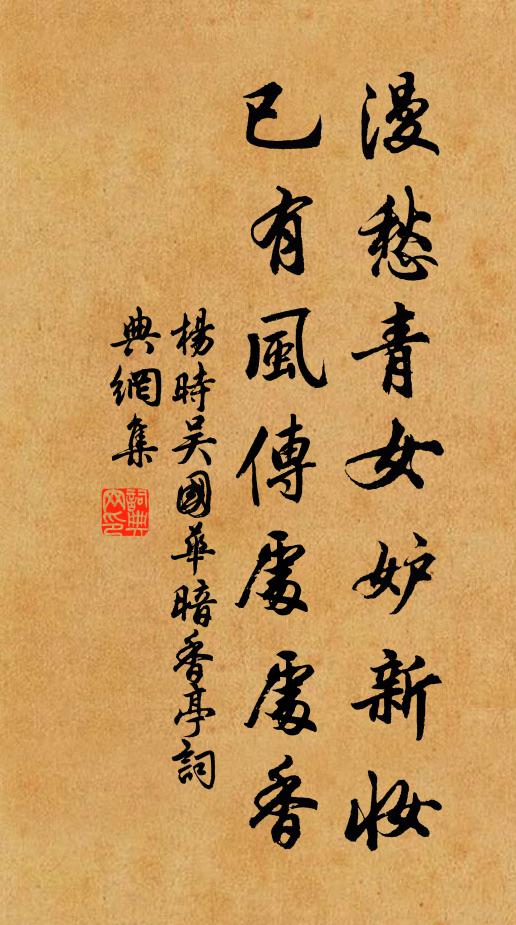 漫愁青女妒新妝
已有風傳處處香
楊時吳國華暗香亭詞
典網集
詞典網印